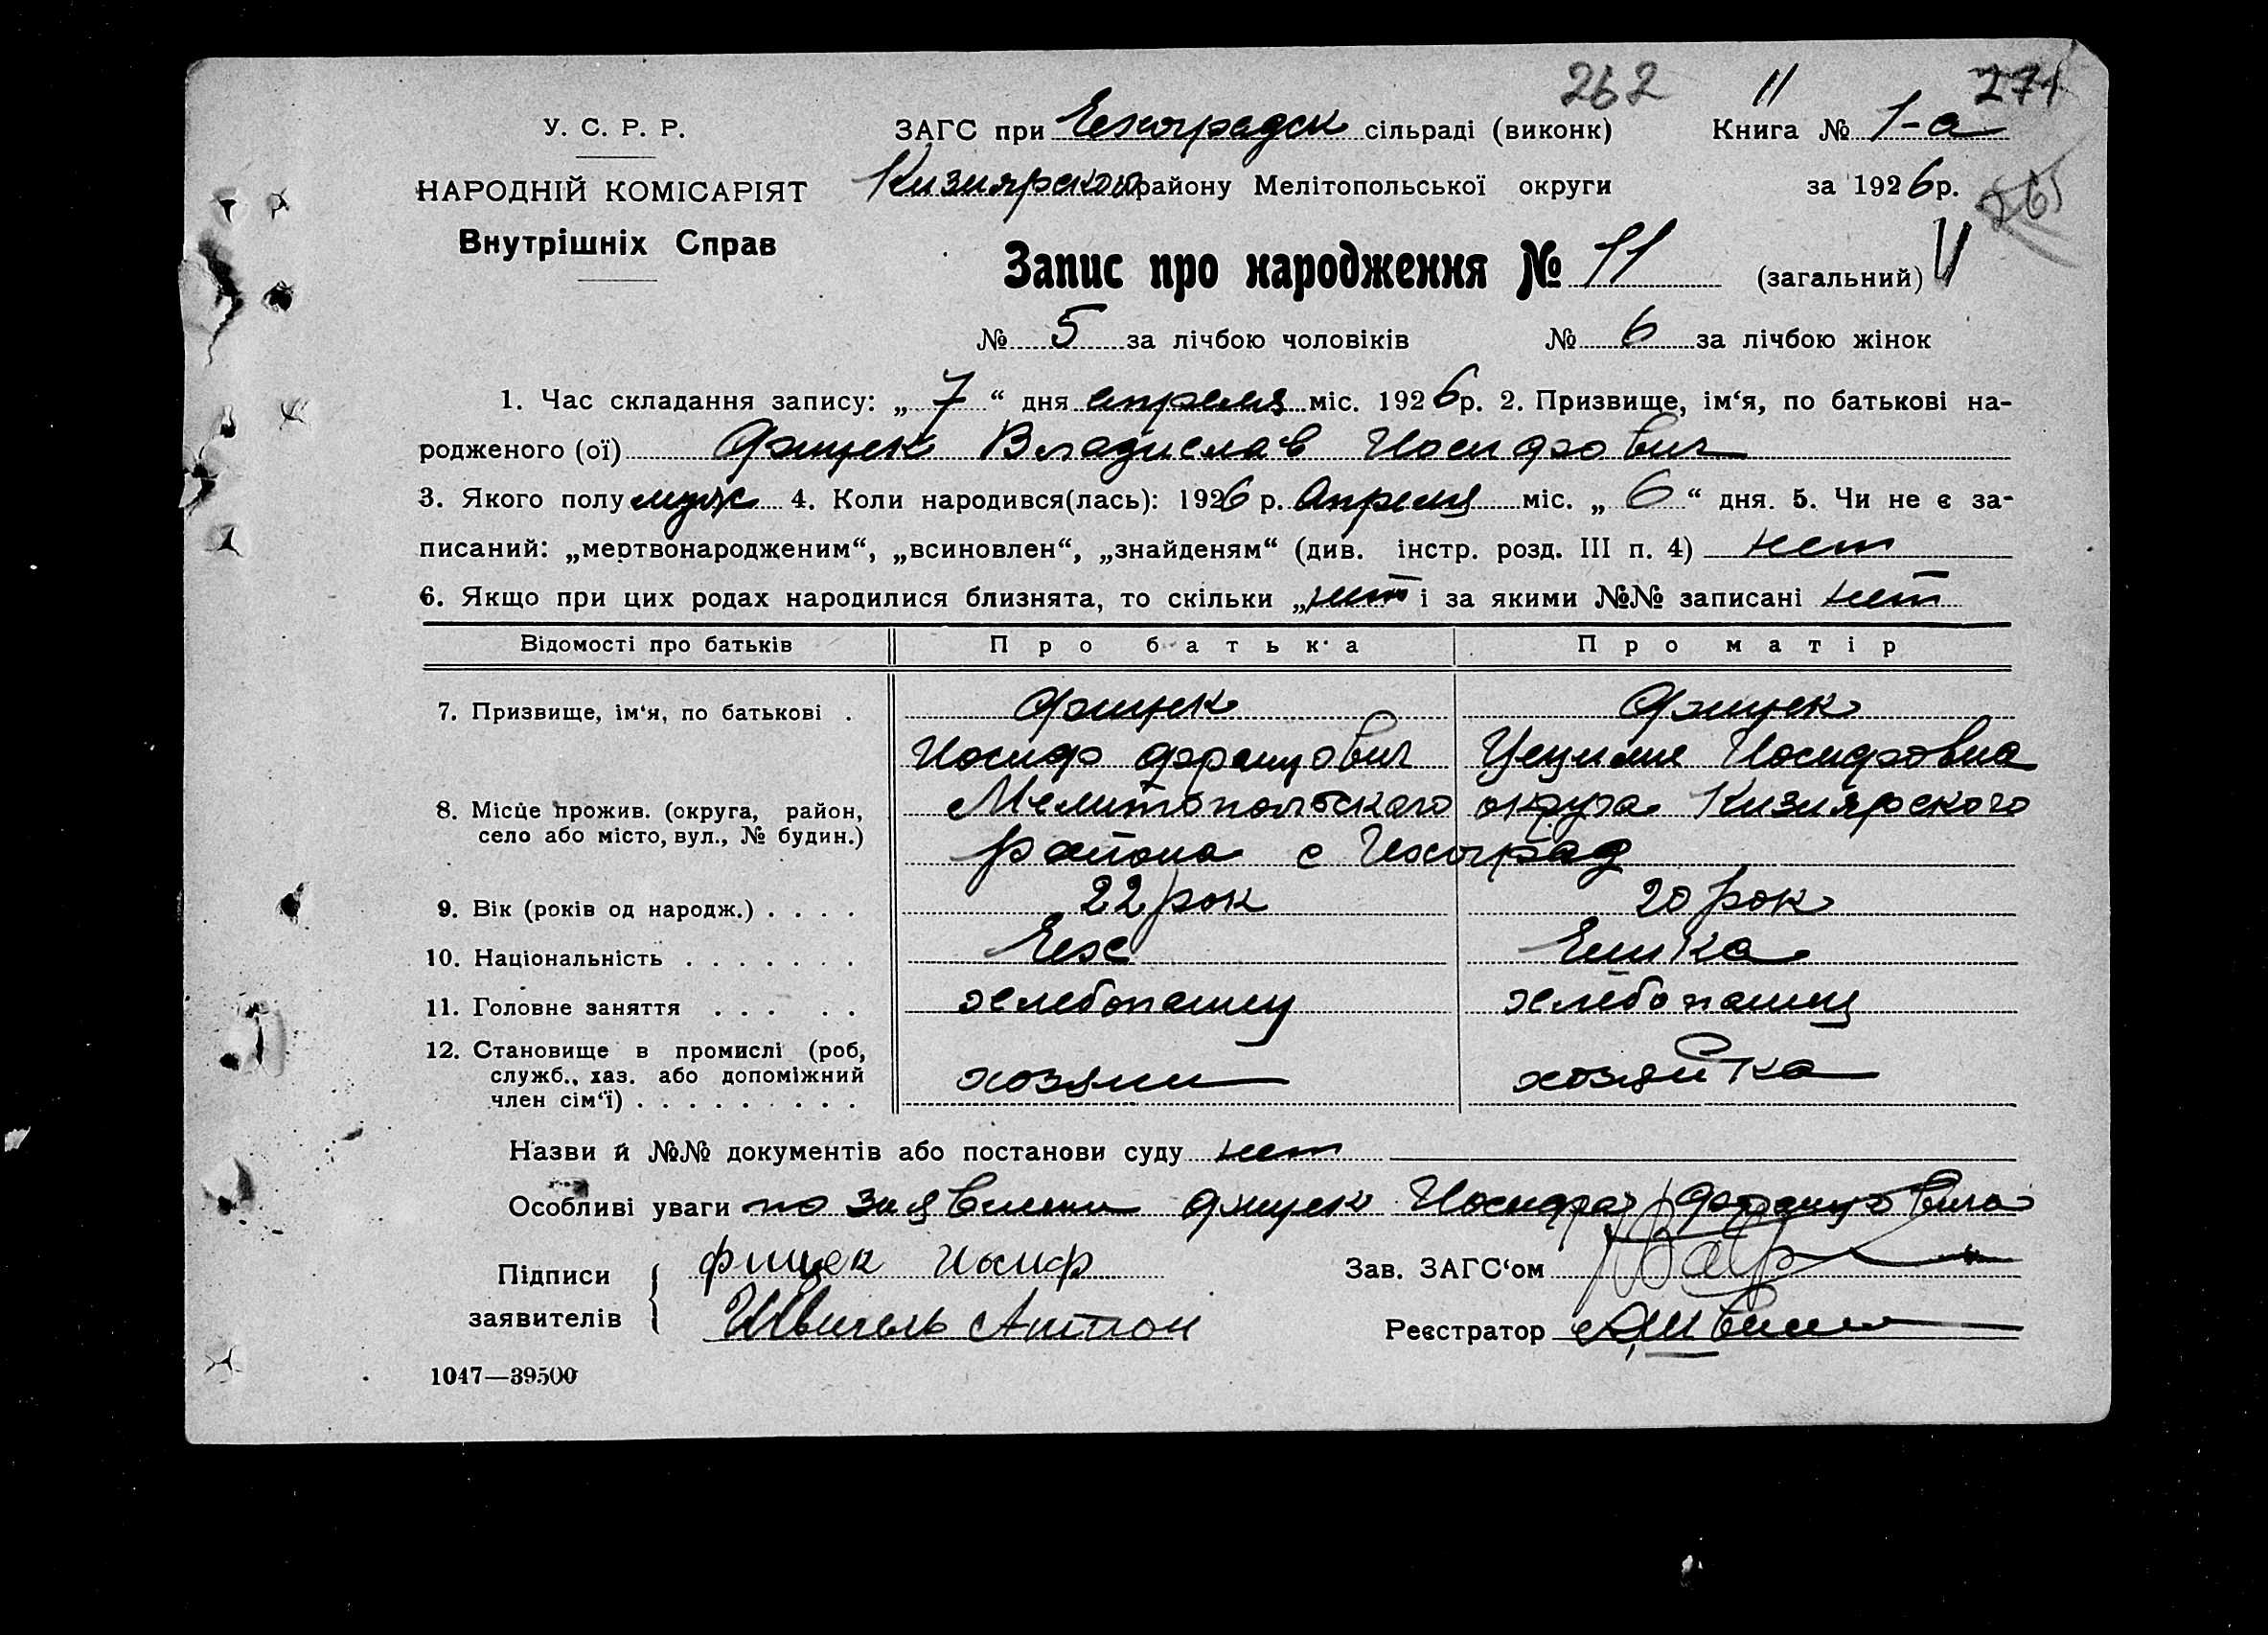 262 11 271
У. С. Р. Р. ЗАГС при Чехоградск сільраді (виконк) Книга № 1-а
НАРОДНІЙ КОМІСАРІЯТ Кизиярского району Мелітопольської округи за 1926 р.
265
Внутрішніх Справ
Запис про народження № 11 (загальний)
№ 5 за лічбою чоловіків № 6 за лічбою жінок
1. Час складання запису: „ 7 “ дня апреля міс. 1926 р. 2. Призвище, ім‘я, по батькові на-
родженого (ої) Фищек Владислав Иосифович
3. Якого полу муж 4. Коли народився(лась): 1926 р. Апреля міс. „ 6 “ дня. 5. Чи не є за-
писаний: „мертвонародженим“, „всиновлен“, „знайденям“ (див. інстр. розд. III п. 4) нет
6. Якщо при цих родах народилися близнята, то скільки „нет і за якими №№ записані нет
Відомості про батьків Про батька Про матір
7. Призвище, ім‘я, по батькові . Фищек Фищек
Иосиф Францович Цецилие Иосифовна
8. Місце прожив. (округа, район, Мелитопольского округа Кизиярского
село або місто, вул., № будин.) района с Чехоград
9. Вік (років од народж.) . . . . 22 рок 20 рок
10. Національність . . . . . . . Чех Чешка
11. Головне заняття . . . . . хлебопашец хлебопашец
12. Становище в промислі (роб,
служб., хаз. або допоміжний хозяин хозяйка
член сім‘ї) . . . . . . . . .
Назви й №№ документів або постанови суду нет
Особливі уваги по заявлении Фищек Иосифа Францовича
Підписи Фищек Иосиф Зав. ЗАГС‘ом
заявителів Швигель Антон Реєстратор
1047—39500